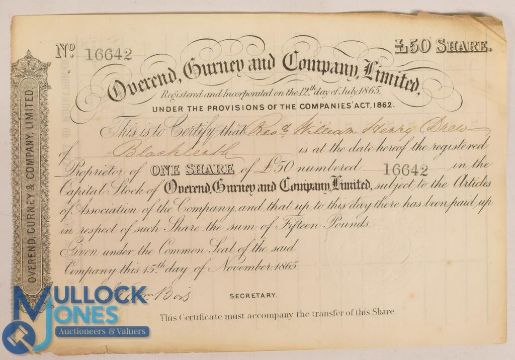 No 16642 £50 SHARE.
Overend, Gurney and Company, Limited,
Registered and Incorporated on the 12th day of July 1865,
UNDER THE PROVISIONS OF THE COMPANIES' ACT, 1862.
This is to Certify that William Henry Drew
of Blackheath is at the date hereof the registered
Proprietor of ONE SHARE of £50 numbered 16642 in the
Capital Stock of Overend, Gurney and Company, Limited, subject to the Articles
of Association of the Company, and that up to this day there has been paid up
in respect of such Share the sum of Fifteen Pounds.
Given under the Common Seal of the said
Company this 15th day of November 1865
SECRETARY.
This Certificate must accompany the transfer of this Share.
OVEREND, GURNEY & COMPANY, LIMITED
MULLOCK
JONES
Auctioneers & Valuers